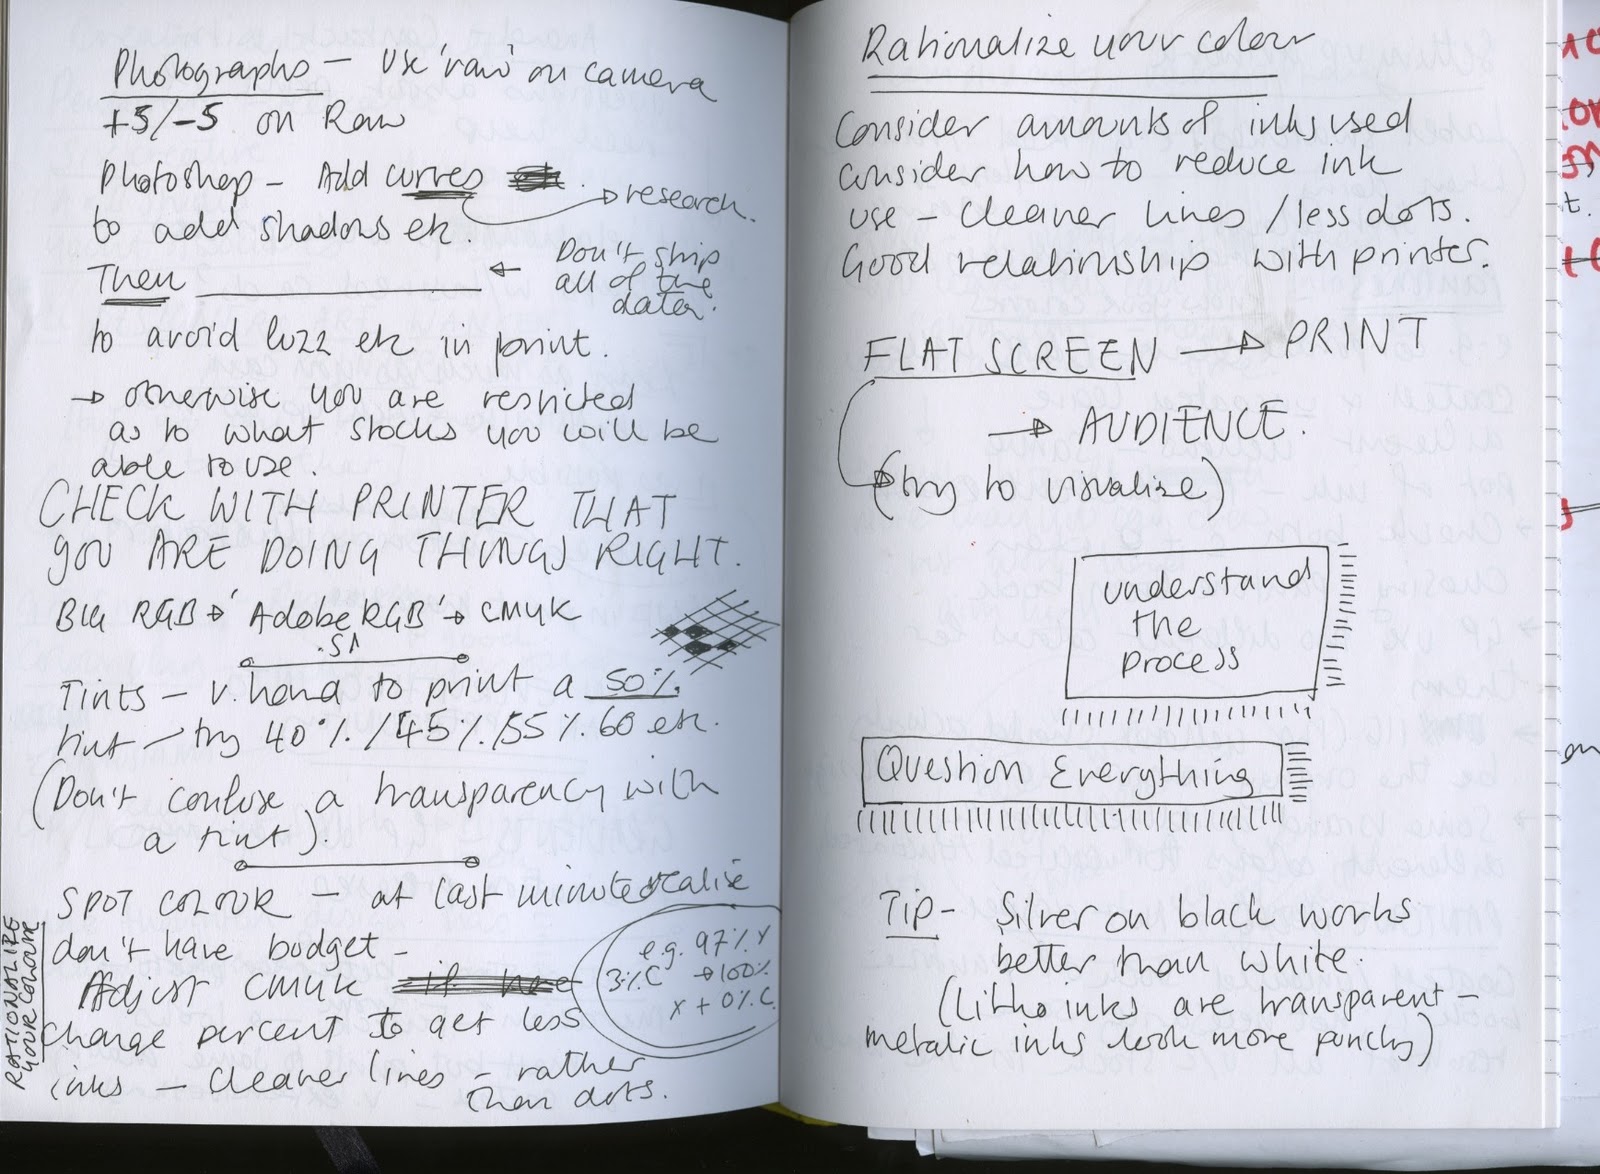 Photographs – Use 'raw' on camera
+5/-5 on Raw
Photoshop – Add curves
→ research.
to add shadows etc.
Then ________ ← Don't ship
all of the
data.
to avoid fuzz etc in print.
→ otherwise you are restricted
as to what stocks you will be
able to use.
CHECK WITH PRINTER THAT
YOU ARE DOING THINGS RIGHT.
BIG RGB → 'Adobe RGB' → CMYK
Tints – v. hard to print a 50%
tint – try 40%/45%/55%.60 etc.
(Don't confuse a transparency with
a tint).
SPOT COLOUR – at last minute realise
don't have budget –
Adjust CMYK
change percent to get less
inks – cleaner lines – rather
than dots.
e.g. 97% Y
3% C → 100%
Y + 0% C.
RATIONALIZE
YOUR COLOUR
Rationalize your colour
Consider amounts of inks used
consider how to reduce ink
use – cleaner lines / less dots.
Good relationship with printer.
FLAT SCREEN → PRINT
→ AUDIENCE.
(try to visualize)
understand
the
process
Question Everything
Tip – Silver on black works
better than white.
(Litho inks are transparent –
metalic inks look more punchy)